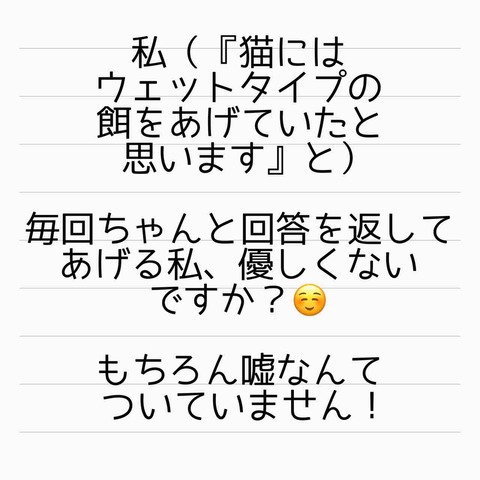 私（『猫には
ウェットタイプの
餌をあげていたと
思います』と）
毎回ちゃんと回答を返して
あげる私、優しくない
ですか？☺️
もちろん嘘なんて
ついていません！